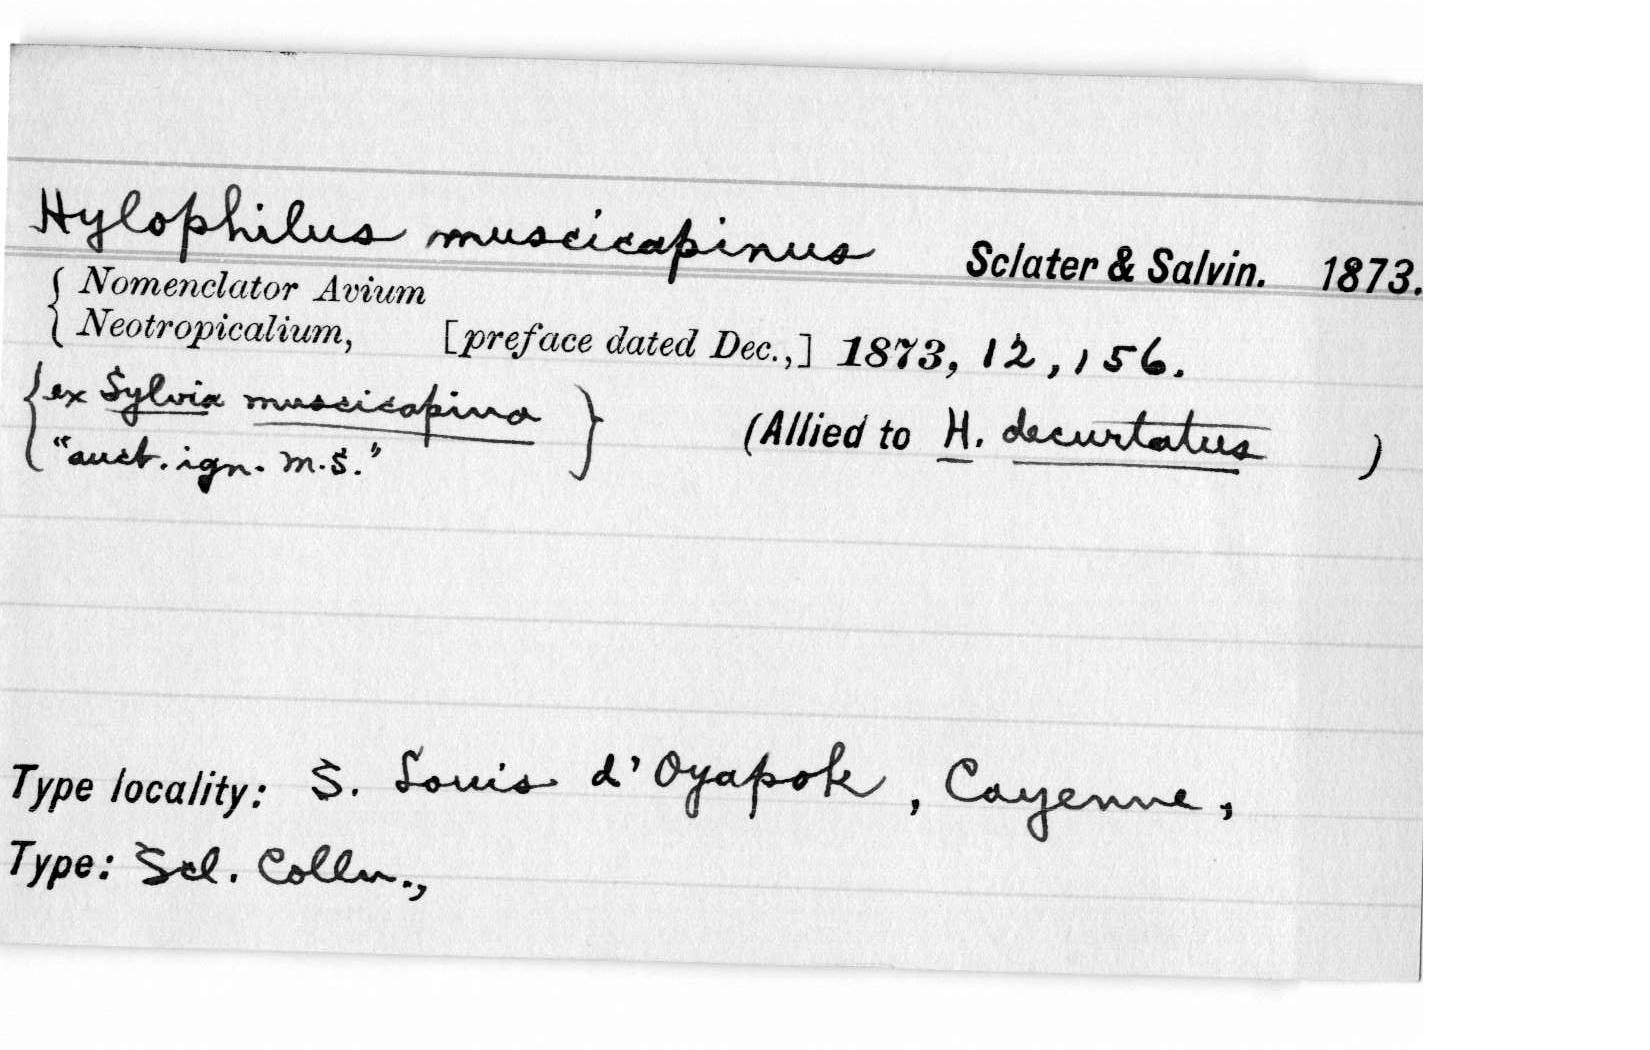 Hylophilus muscicapinus Sclater & Salvin. 1873.
{ Nomenclator Avium
{ Neotropicalium, [preface dated Dec.,] 1873, 12, 156.
{ ex Sylvia muscicapina } (Allied to H. decurtatus )
"auct. ign. M.S."
Type locality: S. Louis d'Oyapok, Cayenne,
Type: Scl. Colln.,